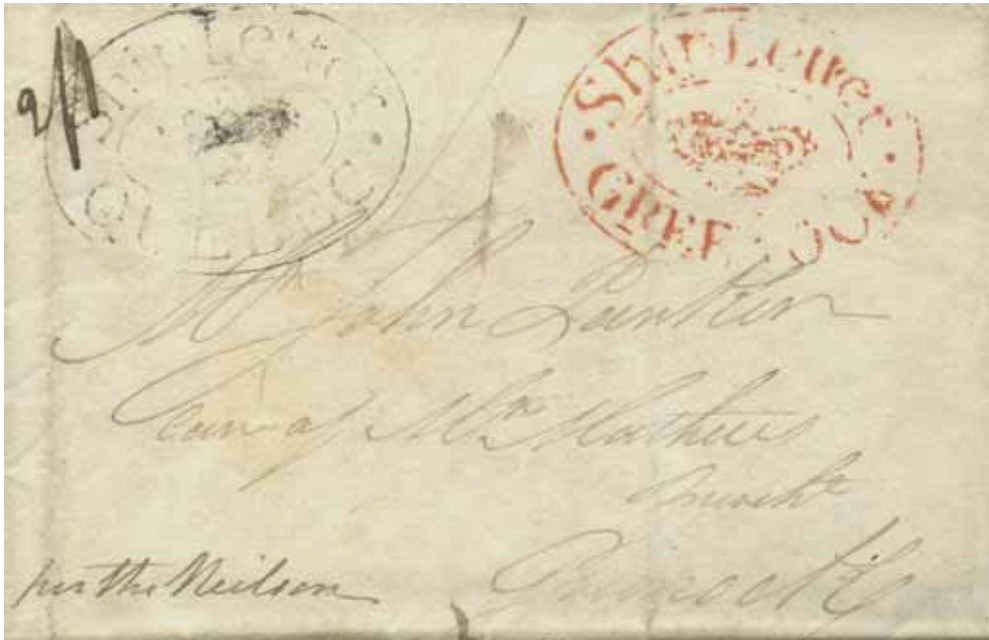 2/1
Ship Letter
QUEBEC
Ship Letter
GREENOCK
Mr John Rankin
Care of Mr Mathew
Greenock
per the Neilson